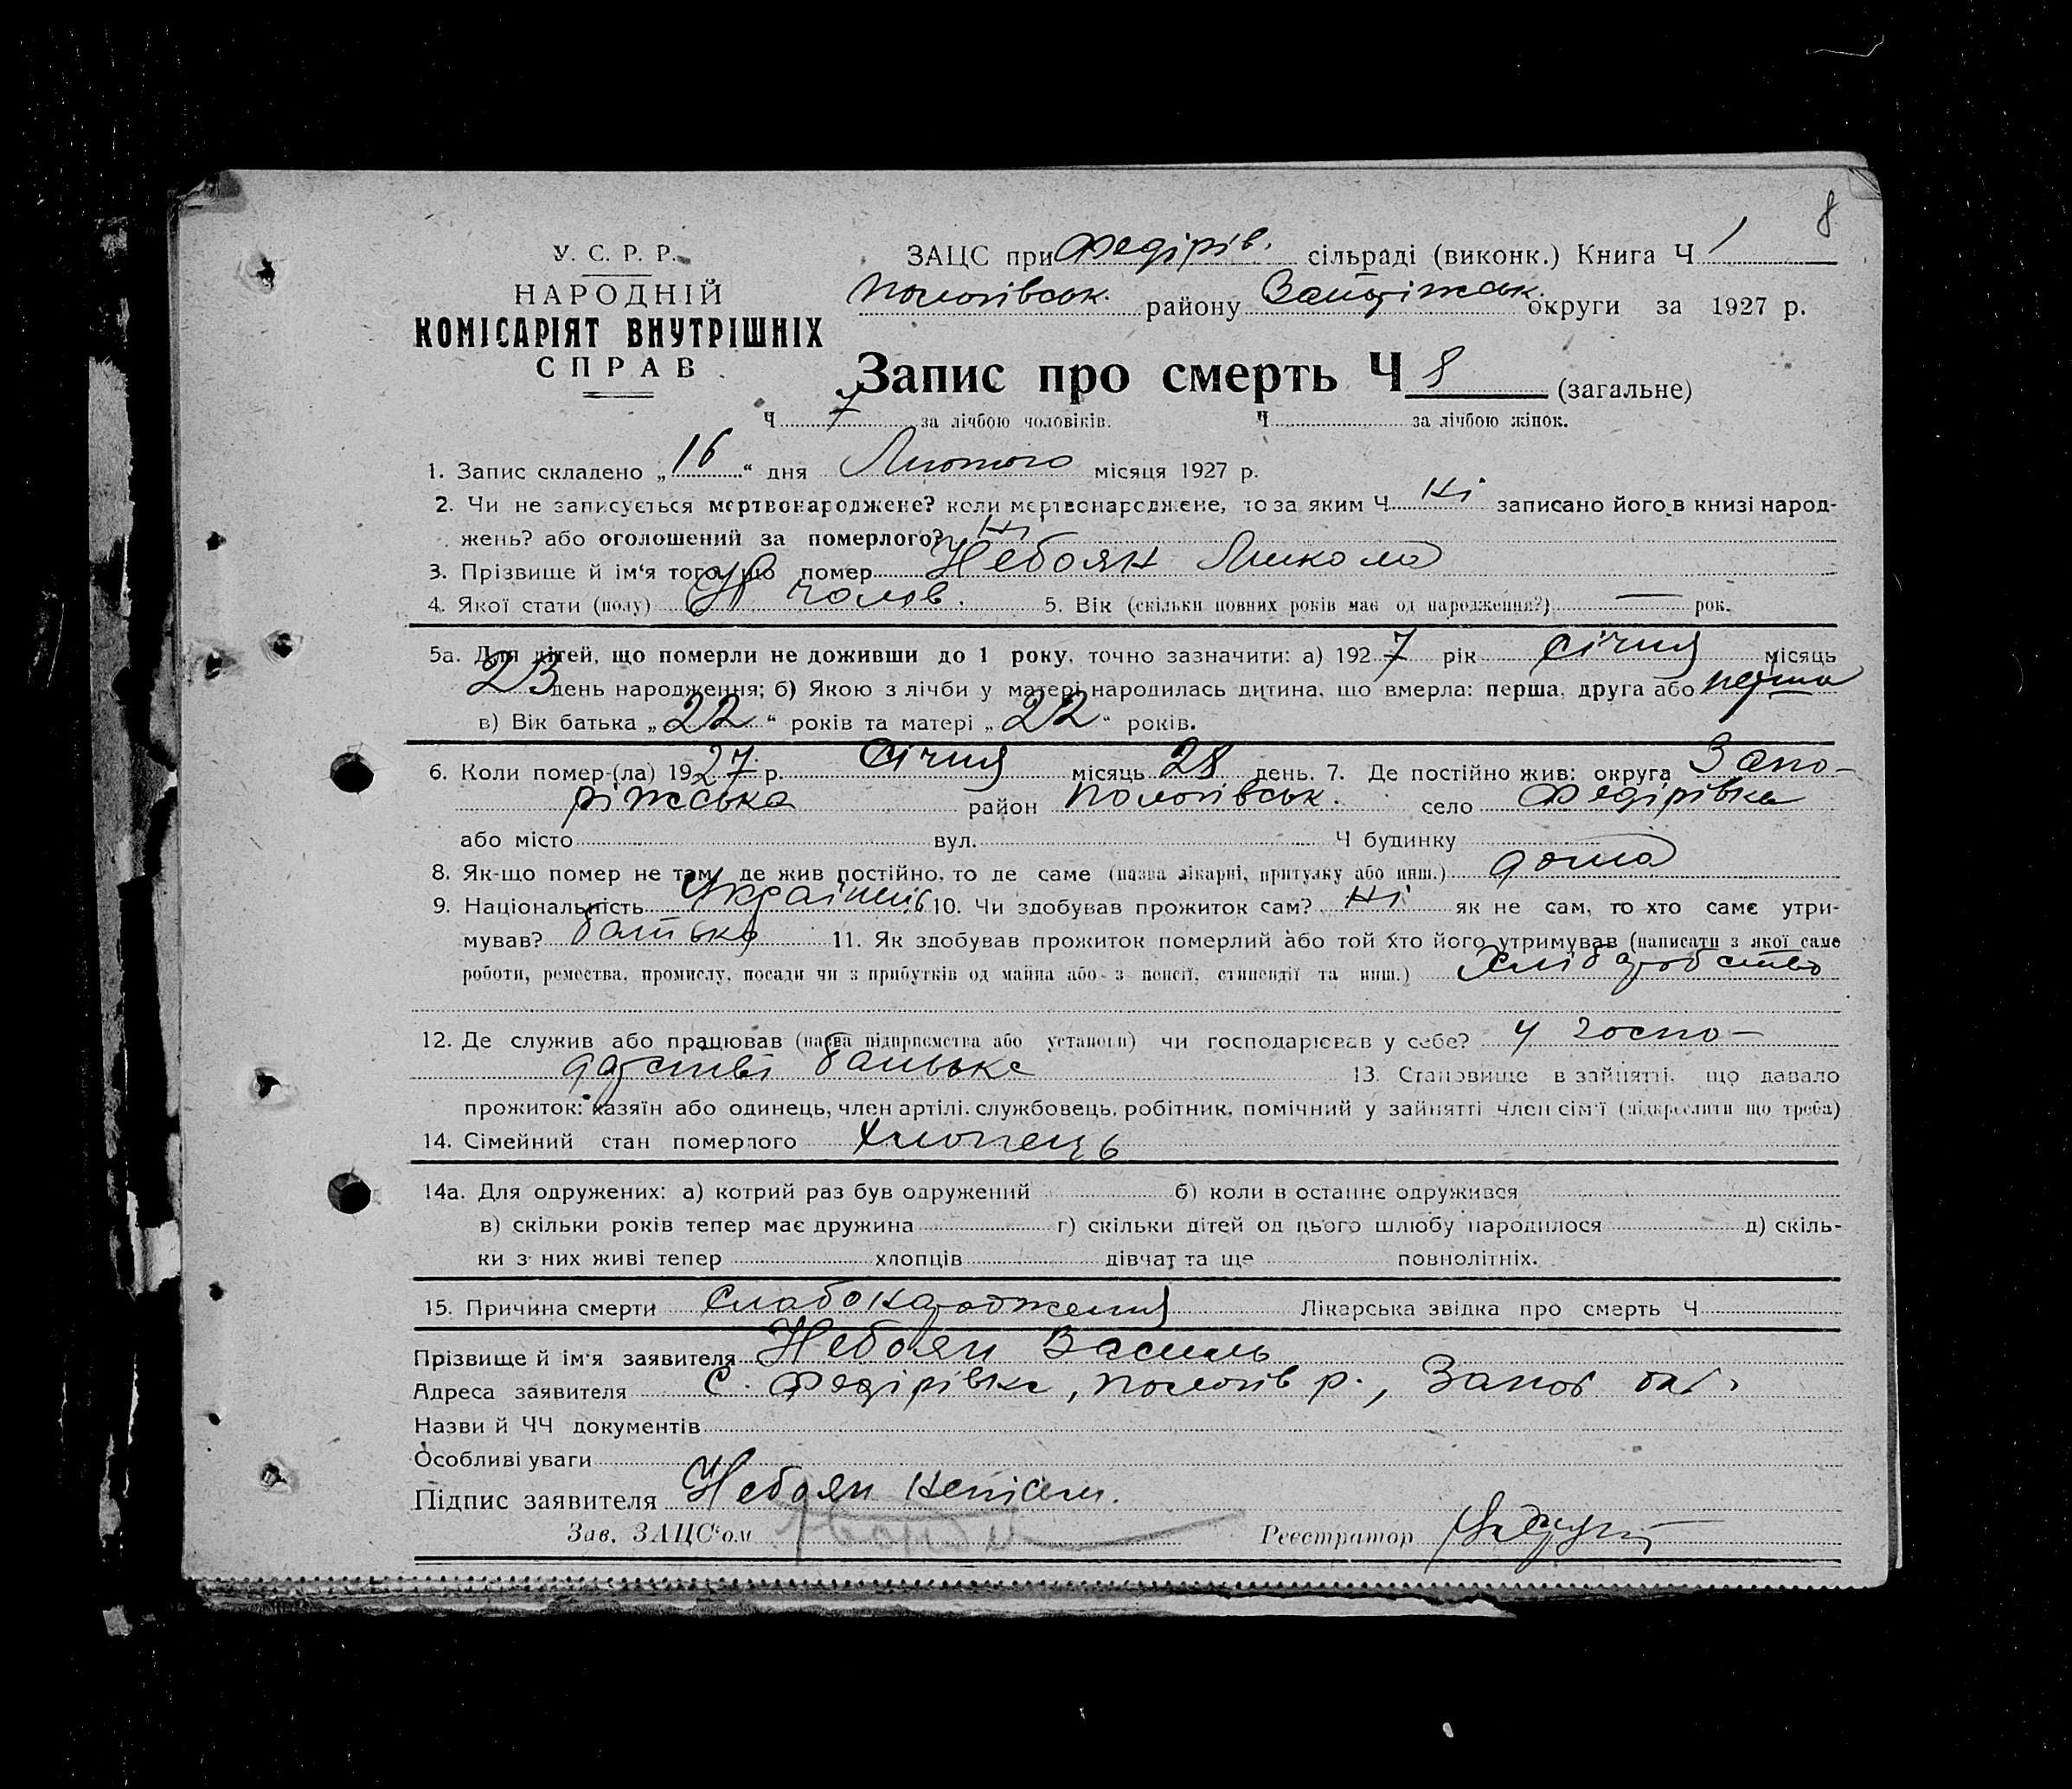 8
У. С. Р. Р.
НАРОДНІЙ
КОМІСАРІЯТ ВНУТРІШНІХ
СПРАВ
ЗАЦС при Федірів. сільраді (виконк.) Книга Ч 1
Пологівськ. району Запоріжськ. округи за 1927 р.
Запис про смерть Ч 8 (загальне)
Ч 7 за лічбою чоловіків. Ч за лічбою жінок.
1. Запис складено „16“ дня Лютого місяця 1927 р.
2. Чи не записується мертвонароджене? коли мертвонароджене, то за яким Ч Ні записано його в книзі народ-
жень? або оголошений за померлого? Ні
3. Прізвище й ім'я того, що помер Небоян Микола
4. Якої стати (полу) чолов. 5. Вік (скільки повних років має од народження?) — рок.
5а. Для дітей, що померли не доживши до 1 року, точно зазначити: а) 1927 рік січня місяць
23 день народження; б) Якою з лічби у матері народилась дитина, що вмерла: перша, друга або перша
в) Вік батька „22“ років та матері „22“ років.
6. Коли помер-(ла) 1927 р. Січня місяць 28 день. 7. Де постійно жив: округа Запо-
ріжська район Пологівськ. село Федірівка
або місто вул. Ч будинку
8. Як-що помер не там, де жив постійно, то де саме (назва лікарні, притулку або инш.) дома
9. Національність Українець 10. Чи здобував прожиток сам? Ні як не сам, то хто саме утри-
мував? батько 11. Як здобував прожиток померлий або той хто його утримував (написати з якої саме
роботи, ремества, промислу, посади чи з прибутків од майна або з пенсії, стипендії та инш.) Хліборобство
12. Де служив або працював (назва підприємства або установи) чи господарював у себе? у госпо-
дарстві батька 13. Становище в зайнятті, що давало
прожиток: хазяїн або одинець, член артілі, службовець, робітник, помічний у зайнятті член сім'ї (підкреслити що треба)
14. Сімейний стан померлого хлопець
14а. Для одружених: а) котрий раз був одружений б) коли в останнє одружився
в) скільки років тепер має дружина г) скільки дітей од цього шлюбу народилося д) скіль-
ки з них живі тепер хлопців дівчат та ще повнолітніх.
15. Причина смерти слабонародження Лікарська звідка про смерть Ч
Прізвище й ім'я заявителя Небоян Василь
Адреса заявителя с. Федірівка, Пологів р., Запор окр.
Назви й ЧЧ документів
Особливі уваги
Підпис заявителя Небоян неписм.
Зав. ЗАЦС'ом
Реєстратор